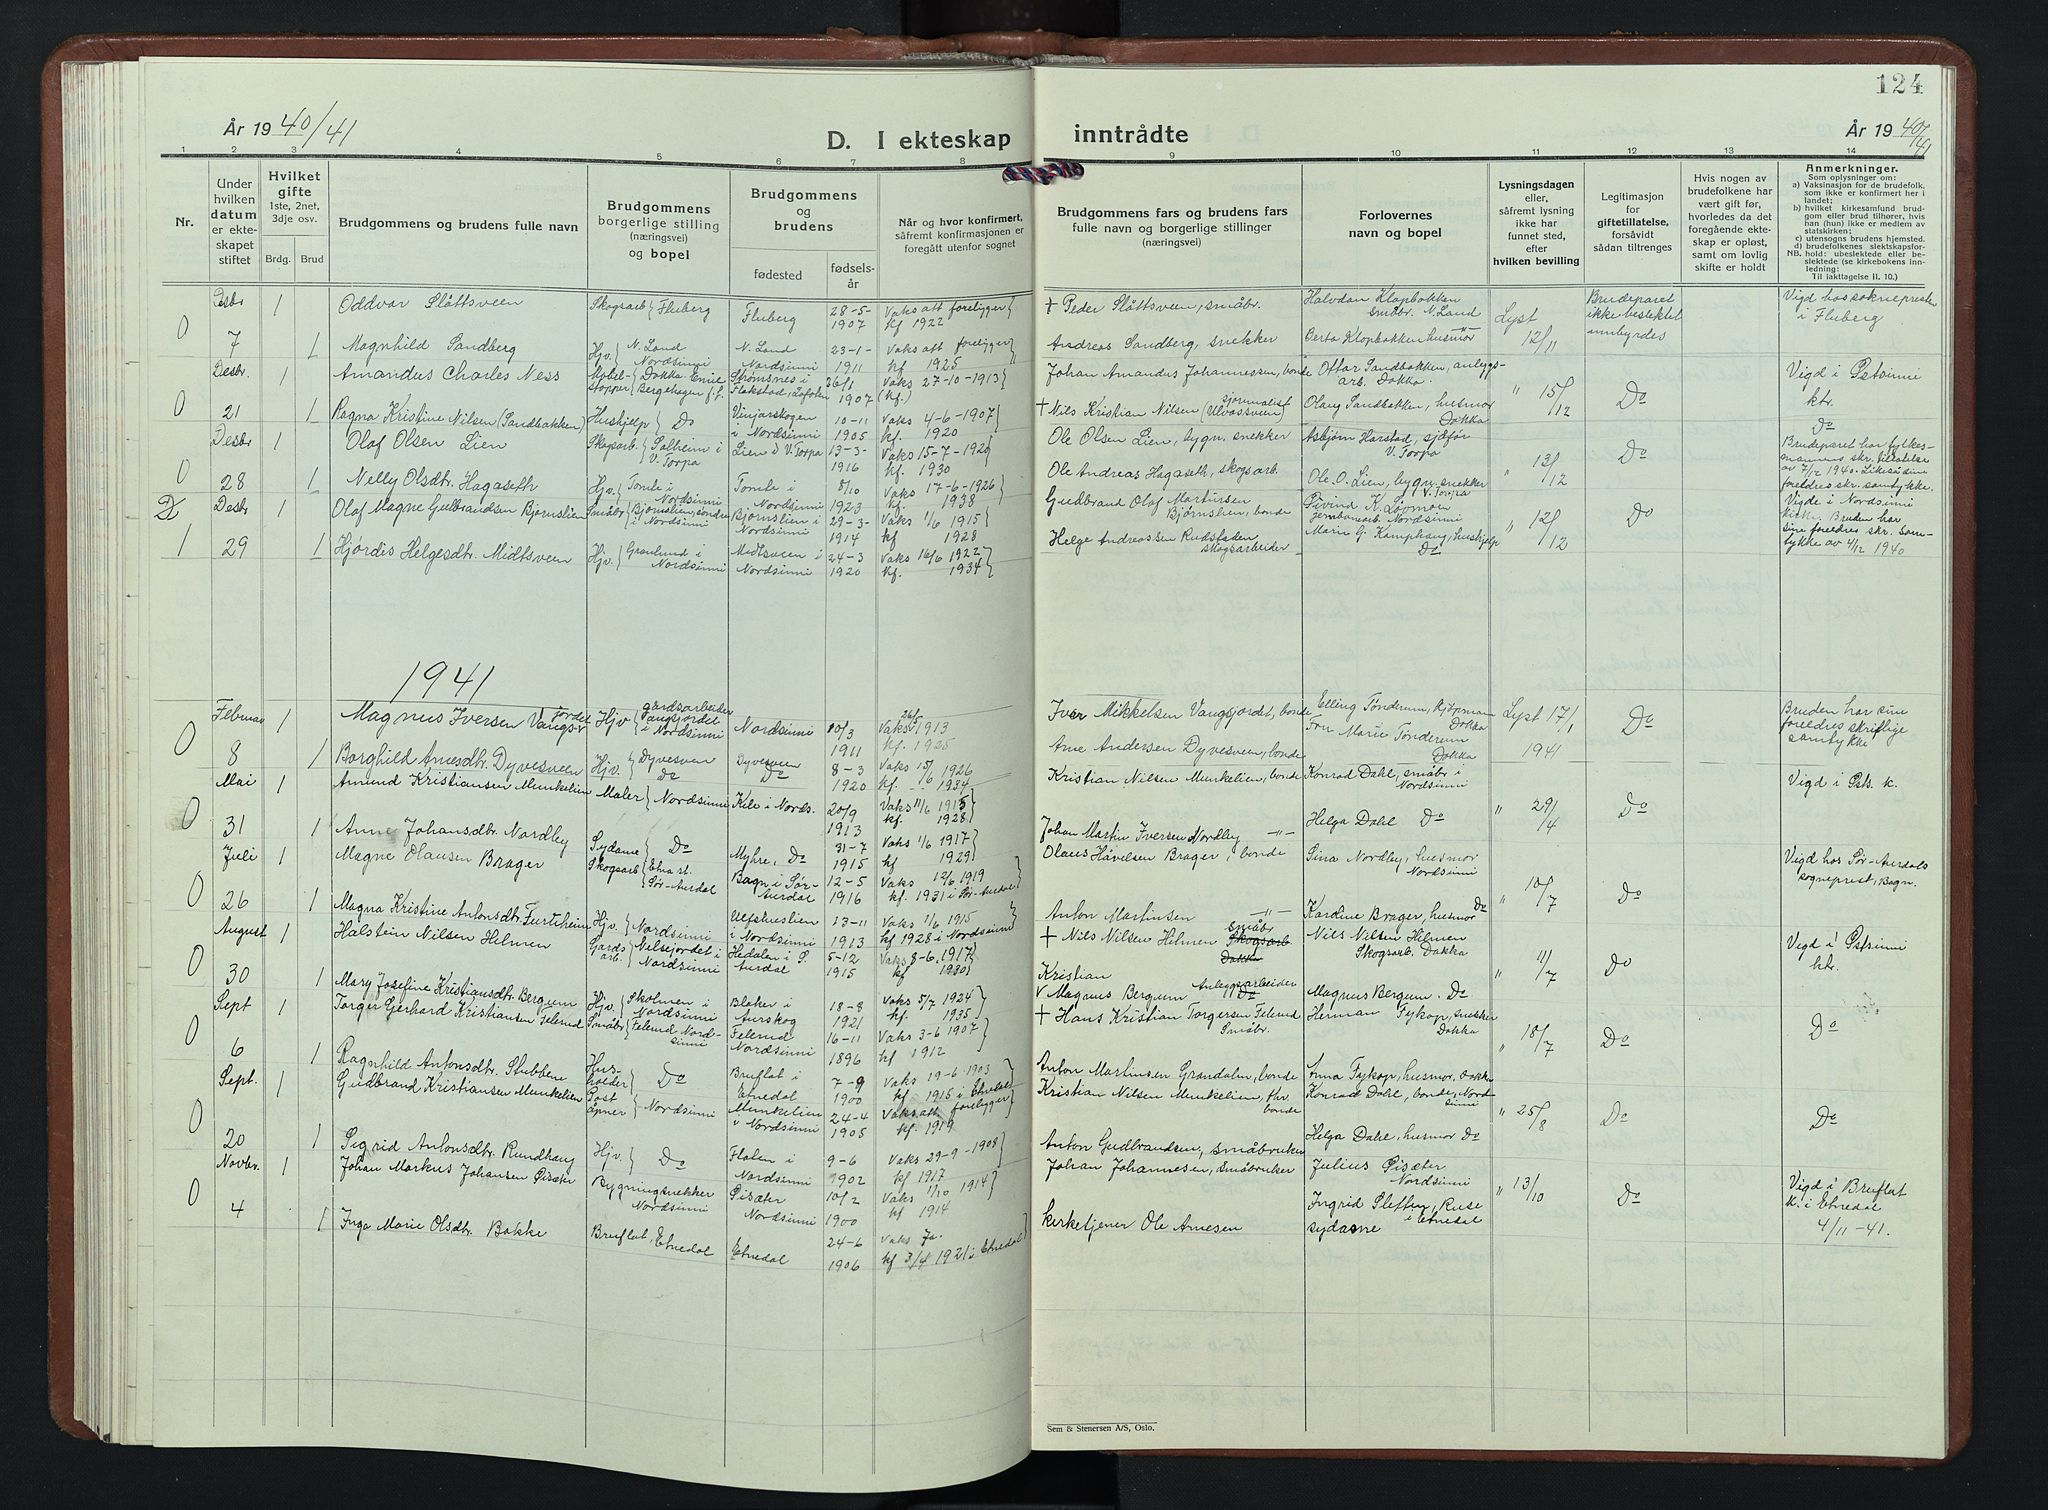 124
År 1940/41
D. I ekteskap inntrådte
År 1940/41
1 2 3 4 5 6 7 8 9 10 11 12 13 14
Nr.
Under hvilken datum er ekteskapet stiftet
Hvilket gifte 1ste, 2net, 3dje osv.
Brdg. Brud
Brudgommens og brudens fulle navn
Brudgommens borgerlige stilling (næringsvei) og bopel
Brudgommens og brudens
fødested
fødselsår
Når og hvor konfirmert, såfremt konfirmasjonen er foregått utenfor sognet
Brudgommens fars og brudens fars fulle navn og borgerlige stillinger (næringsvei)
Forlovernes navn og bopel
Lysningsdagen eller, såfremt lysning ikke har funnet sted, efter hvilken bevilling
Legitimasjon for giftetillatelse, forsåvidt sådan tiltrenges
Hvis nogen av brudefolkene har vært gift før, hvorledes da det foregående ekteskap er opløst, samt om lovlig skifte er holdt
Anmerkninger.
Som oplysninger om:
a) Vaksinasjon for de brudefolk, som ikke er konfirmert her i landet;
b) hvilket kirkesamfund brudgom eller brud tilhører, hvis han (hun) ikke er medlem av statskirken;
c) utensogns brudens hjemsted.
d) brudefolkenes slektskapsforhold: ubeslektede eller beslektede (se kirkebokens innledning:
NB. Til iakttagelse II. 10.)
Desbr 1 Oddvar Slåttsveen Skogsarb Fluberg Fluberg 28-5-1907 Vaks att foreligger kf 1922 † Peder Slåttsveen, småbr. Halvdan Klopbakken småbr. N. Land Lyst 12/11 Brudeparet ikke beslektet innbyrdes Vigd hos soknepresten i Fluberg
0 7 1 Magnhild Sandberg Hjv. N. Land Nordsinni N. Land Nordsinni 23-1-1911 Vaks att foreligger kf 1925 Andreas Sandberg, snekker Berta Klopbakken husmor
Desbr. 1 Amandus Charles Ness Møbelstopper Dokka Strømsnes i Flakstad, Lofoten 26/1 1907 Vaks 27-10-1913 (kf.) Johan Amandus Johannessen, bonde Ottar Sandbakken, anleggsarb. Dokka. " 15/12 Do Vigd i Østsinni ktr.
0 21 1 Ragna Kristine Nilsen (Sandbakken) Hushjelp Do Vinjarskogen i Nordsinni 10-11 1905 Vaks 4-6-1907 kf. 1920 † Nils Kristian Nilsen (Ulvåssveen) Olaug Sandbakken, husmor Dokka
Desbr 1 Olaf Olsen Lien Skogsarb Solheim i V. Torpa Lien i V. Torpa 13-3-1916 Vaks 15-7-1920 kf. 1930 Ole Olsen Lien, bygn. snekker Asbjørn Harstad, sjåfør V. Torpa " 13/12 Do Do Brudeparet har fylkesmannens skr. tillatelse av 7/12 1940. Likså sine foreldres skr. samtykke.
0 28 1 Nelly Olsdtr. Hagaseth Hjv. Tomle i Nordsinni Tomle i Nordsinni 8/10 1923 Vaks 17-6-1926 kf. 1938 Ole Andreas Hagaseth, skogsarb. Ole O. Lien, bygn. snekker V. Torpa
Desbr 1 Olaf Magne Gulbrandsen Bjørnslien Småbr Bjørnslien, søndre i Nordsinni Bjørnslien i Nordsinni 29-3-1914 Vaks 1/6 1915 kf 1928 Gudbrand Olaf Martinsen Bjørnslien, bonde Øivind K. Løvmoen jernbanearb. Nordsinni " 12/12 Do Vigde i Nordsinni kirke, Bruden har sine foreldres skr. samtykke av 4/12 1940
1 29 1 Hjørdis Helgesdtr. Midtsveen Hjv. Grønlund i Nordsinni Midtsveen i Nordsinni 24-3 1920 Vaks 16/6 1922 kf. 1934 Helge Andreassen Rudsfaden skogsarbeider Marie G. Kamphaug, hushjelp Do
1941
Februar 1 Magnus Iversen Vangsjordet Hjv gardsarbeider Vangsjordet i Nordsinni Nordsinni 20/3 1911 Vaks 26/5 1913 kf. 1925 Iver Mikkelsen Vangsjordet, bonde Elling Tønderum, kjøpmann Dokka Lyst 17/1 1941 Do Bruden har sine foreldres skriftlige samtykke
0 8 1 Borghild Arnesdtr. Dyvesveen Hjv. Dyvesveen Do Dyvesveen Do 8-3 1920 Vaks 15/6 1926 kf. 1934 Arne Andersen Dyvesveen, bonde Fru Marie Tønderum Dokka
Mai 1 Amund Kristiansen Munkelien Maler Nordsinni Kile i Nords. 20/9 1913 Vaks 11/6 1915 kf. 1928 Kristian Nilsen Munkelien, bonde Konrad Dahl, småbr i Nordsinni " 29/4 Do Vigd i Østs. k.
0 31 1 Anne Johansdtr. Nordby Sydame Do Myhre, Do 31-7 1915 Vaks 1/6 1917 kf 1929 Johan Martin Iversen Nordby -"- Helga Dahl Do
Juli 1 Magne Olausen Brager Skogsarb Etna st. Sør-Aurdal Bagn i Sør-Aurdal 12-5 1916 Vaks 12/6 1919 kf. 1931 i Sør-Aurdal Olaus Håvelsen Brager, bonde Sina Nordby, husmor Nordsinni " 10/7 Do Vigd hos Sør-Aurdals sogneprest, Bagn.
0 26 1 Magna Kristine Antonsdtr. Furuheim Hjv. Nordsinni i Nordsinni 13-11 1913 Vaks 1/6 1915 kf 1928 i Nordsinni Anton Martinsen -"- Karoline Brager, husmor Do
August 1 Halstein Nilsen Helmen Gardsarb. Nilsejordet i Nordsinni Hedalen i S. Aurdal 5-12 1915 Vaks 8-6.1917 kf 1930 † Nils Nilsen Hilmen Småbr Skogsarb Dokka Nils Nilsen Hilmen Skogsarb. Dokka " 11/7 Do Vigd i Østsinni ktr.
0 30 1 Mary Josefine Kristiansdtr. Bergum Hjv. Skolmen i Nordsinni Blaker i Aurskog 18-8 1921 Vaks 5/7 1924 kf. 1935 Kristian Magnus Bergum Anleggsarbeider Do Magnus Bergum. Do
Sept 1 Torger Gerhard Kristiansen Felerud Småbr Felerud Nordsinni Felerud Nordsinni 16-11 1896 Vaks 3-6 1907 kf 1912 † Hans Kristian Torgersen Felerud Småbr. Herman Fykop, snekker Dokka " 18/7 Do Do
0 6 1 Ragnhild Antonsdtr. Stubbene Husholder Do Bruflat i Etnedal 7-9 1900 Vaks 19-6-1903 kf 1915 i Etnedal Anton Martinsen Grøndalen, bonde Anna Fykop, husmor. Dokka
Sept. 1 Gudbrand Kristiansen Munkelien Poståpner Nordsinni Munkelien i Nordsinni 24-4 1905 Vaks att foreligger kf. 1919 Kristian Nilsen Munkelien, fhv. bonde Konrad Dahl, bonde, Nordsinni " 25/8 Do Do
0 20 1 Sigrid Antonsdtr. Rundhaug Hjv. Do Flølen i Nordsinni 9-6 1902 Vaks 29-9-1908 kf 1917 Anton Gudbrandsen, småbruker Helga Dahl, husmor Do
Novbr. 1 Johan Markus Johansen Øisæter Bygningsnekker Nordsinni Øisæter Nordsinni 10/2 1900 Vaks 1/10 1914 kf 1914 Johan Johannesen, småbruker Julius Øisæter Nordsinni " 13/10 Do Vigd i Bruflat k. i Etnedal 4/11-41.
0 4 1 Inga Marie Olsdtr. Bakke Bruflat, Etnedal Etnedal 24-6 1906 Vaks Ja. kf 3/4 1921 i Etnedal kirketjener Ole Arnesen Ingrid Sleften, Ruse i Etnedal sydame
Sem & Stenersen A/S, Oslo.